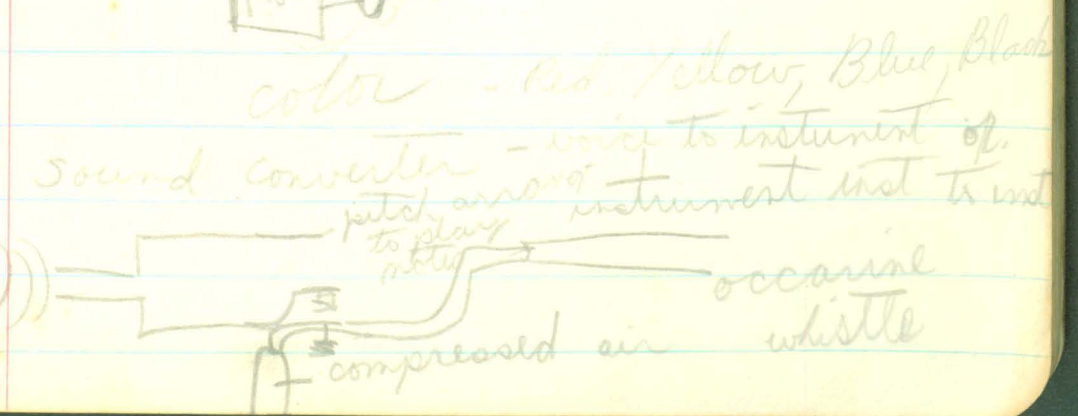 color - Red, Yellow, Blue, Black
Sound Converter - voice to instument or
pitch arrang instrument inst to inst
to play
notes
occarine
whistle
compressed air